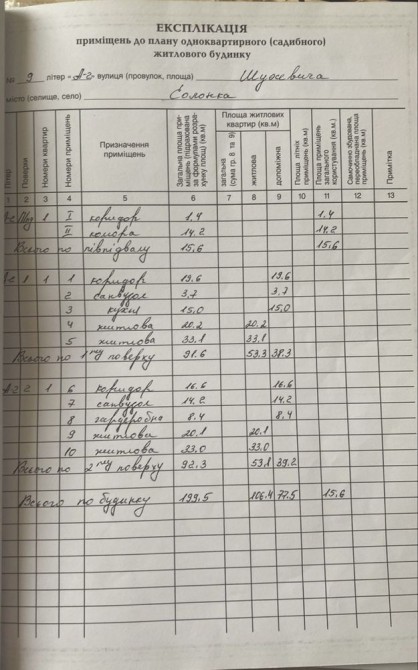 ЕКСПЛІКАЦІЯ
приміщень до плану одноквартирного (садибного)
житлового будинку
№ 9 літер «А-2» вулиця (провулок, площа) Шухевича
місто (селище, село) Солонка
Літер Поверхи Номери квартир Номери приміщень Призначення приміщень Загальна площа приміщень (підрахована за формулами розрахунку площ) (кв.м) Площа житлових квартир (кв.м) загальна (сума гр. 8 та 9) житлова допоміжна Площа літніх приміщень (кв.м) Площа приміщень загального користування (кв.м) Самочинно збудована, переобладнана площа приміщень (кв.м) Примітка
1 2 3 4 5 6 7 8 9 10 11 12 13
1 I коридор 1,4 1,4
II комора 14,2 14,2
Всього по півпідвалу 15,6 15,6
1 1 1 коридор 19,6 19,6
2 санвузол 3,7 3,7
3 кухня 15,0 15,0
4 житлова 20,2 20,2
5 житлова 33,1 33,1
Всього по 1му поверху 91,6 53,3 38,3
А-2 2 1 6 коридор 16,6 16,6
7 санвузол 14,2 14,2
8 гардеробна 8,4 8,4
9 житлова 20,1 20,1
10 житлова 33,0 33,0
Всього по 2му поверху 92,3 53,1 39,2
Всього по будинку 199,5 106,4 77,5 15,6